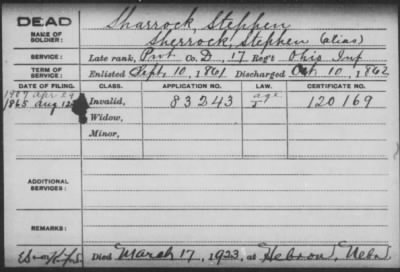 DEAD
NAME OF SOLDIER: Sharrock, Stephen
Sherrock, Stephen (alias)
SERVICE: Late rank, Pvt Co. D, 17 Reg't Ohio Inf
TERM OF SERVICE: Enlisted Sept. 10, 1861 Discharged Oct. 10, 1862
DATE OF FILING. CLASS. APPLICATION NO. LAW. CERTIFICATE NO.
1907 Apr 29 age
1865 Aug 12 Invalid, 83243 120169
Widow,
Minor,
ADDITIONAL SERVICES:
REMARKS:
Died March 17, 1923, at Hebron, Nebr.